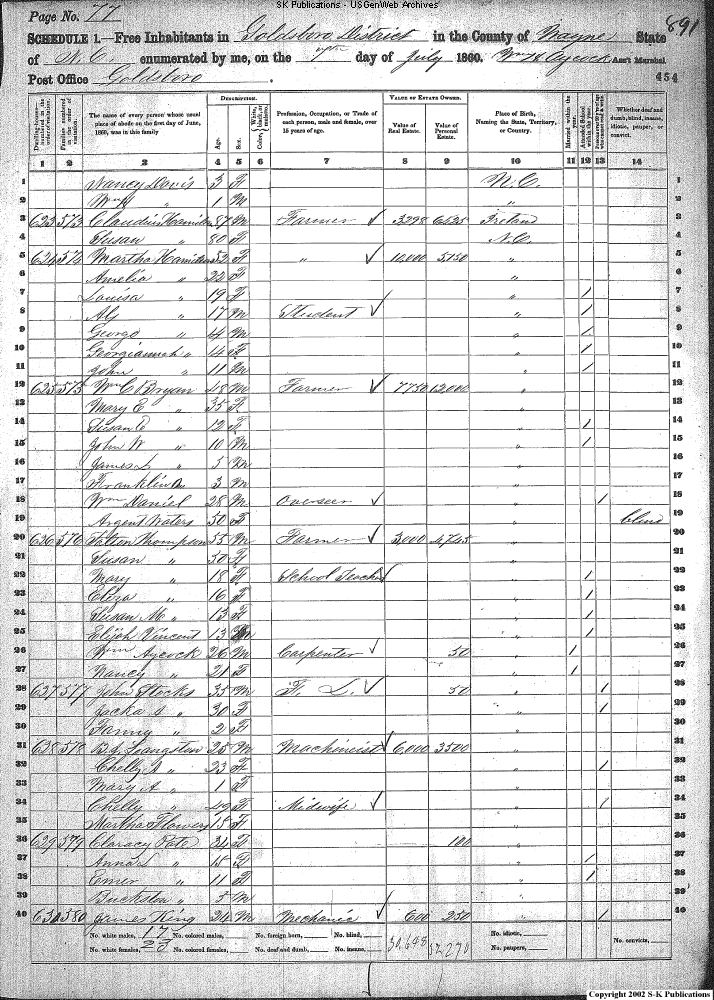 SK Publications - USGenWeb Archives
Page No. 77
891
SCHEDULE 1.—Free Inhabitants in Goldsboro District in the County of Wayne State
of N.C. enumerated by me, on the day of July 1860. Wm H Aycock Ass't Marshal
Post Office Goldsboro. 454
Dwelling-houses numbered in the order of visitation. Families numbered in the order of visitation. The name of every person whose usual place of abode on the first day of June, 1860, was in this family DESCRIPTION. Age. Sex. Color, White, black, or mulatto. Profession, Occupation, or Trade of each person, male and female, over 15 years of age. VALUE OF ESTATE OWNED. Value of Real Estate. Value of Personal Estate. Place of Birth, Naming the State, Territory, or Country. Married within the year. Attended School within the year. Whether deaf and dumb, blind, insane, idiotic, pauper, or convict.
1 2 3 4 5 6 7 8 9 10 11 12 13 14
1 Nancy Davis 3 F N.C. 1
2 1 M " 2
3 623 573 Claudius Hamilton 87 M Farmer 3298 6535 Ireland 3
4 Susan " 80 F N.C. 4
5 624 574 Martha Hamilton 52 F " 10,000 5150 " 5
6 Amelia " 22 F " 6
7 Louisa " 19 F " / 7
8 " 17 M Student " / 8
9 George " 14 M " / 9
10 Georgiannah " 14 F " / 10
11 John " 11 M " / 11
12 625 575 Wm C Bryan 48 M Farmer 7750 12,000 " 12
13 Mary E " 35 F " 13
14 Susan E " 12 F " / 14
15 John W " 10 M " / 15
16 James L " 5 M " 16
17 Franklin " 3 M " 17
18 Wm Daniel 28 M Overseer " / 18
19 Argent Waters 50 F " blind 19
20 626 576 Thompson 55 M Farmer 3,000 4745 " 20
21 Susan " 50 F " 21
22 Mary " 18 F School Teacher " / 22
23 Eliza " 16 F " / 23
24 Susan M " 13 F " / 24
25 Elijah Vincent 13 M " / 25
26 Wm Aycock 26 M Carpenter 50 " / 26
27 Nancy " 21 F " / 27
28 627 577 John Stocks 35 M F. L. 50 " / 28
29 " 30 F " / 29
30 Fanny " 2 F " 30
31 628 578 Langston 25 M Machinist 6,000 3500 " 31
32 Chelly A " 23 F " / 32
33 Mary A " 1 F " 33
34 Chelly " 49 F Midwife " / 34
35 Martha Flowers 15 F " 35
36 629 579 Claracy Pate 34 F 100 " 36
37 Anna " 15 F " / 37
38 " 11 F " / 38
39 " M " 39
40 630 580 James King 24 M Mechanic 600 250 " / 40
No. white males, 17 No. colored males, No. foreign born, No. blind, No. idiotic, No. convicts,
No. white females, 23 No. colored females, No. deaf and dumb, No. insane, No. paupers,
Copyright 2002 S-K Publications